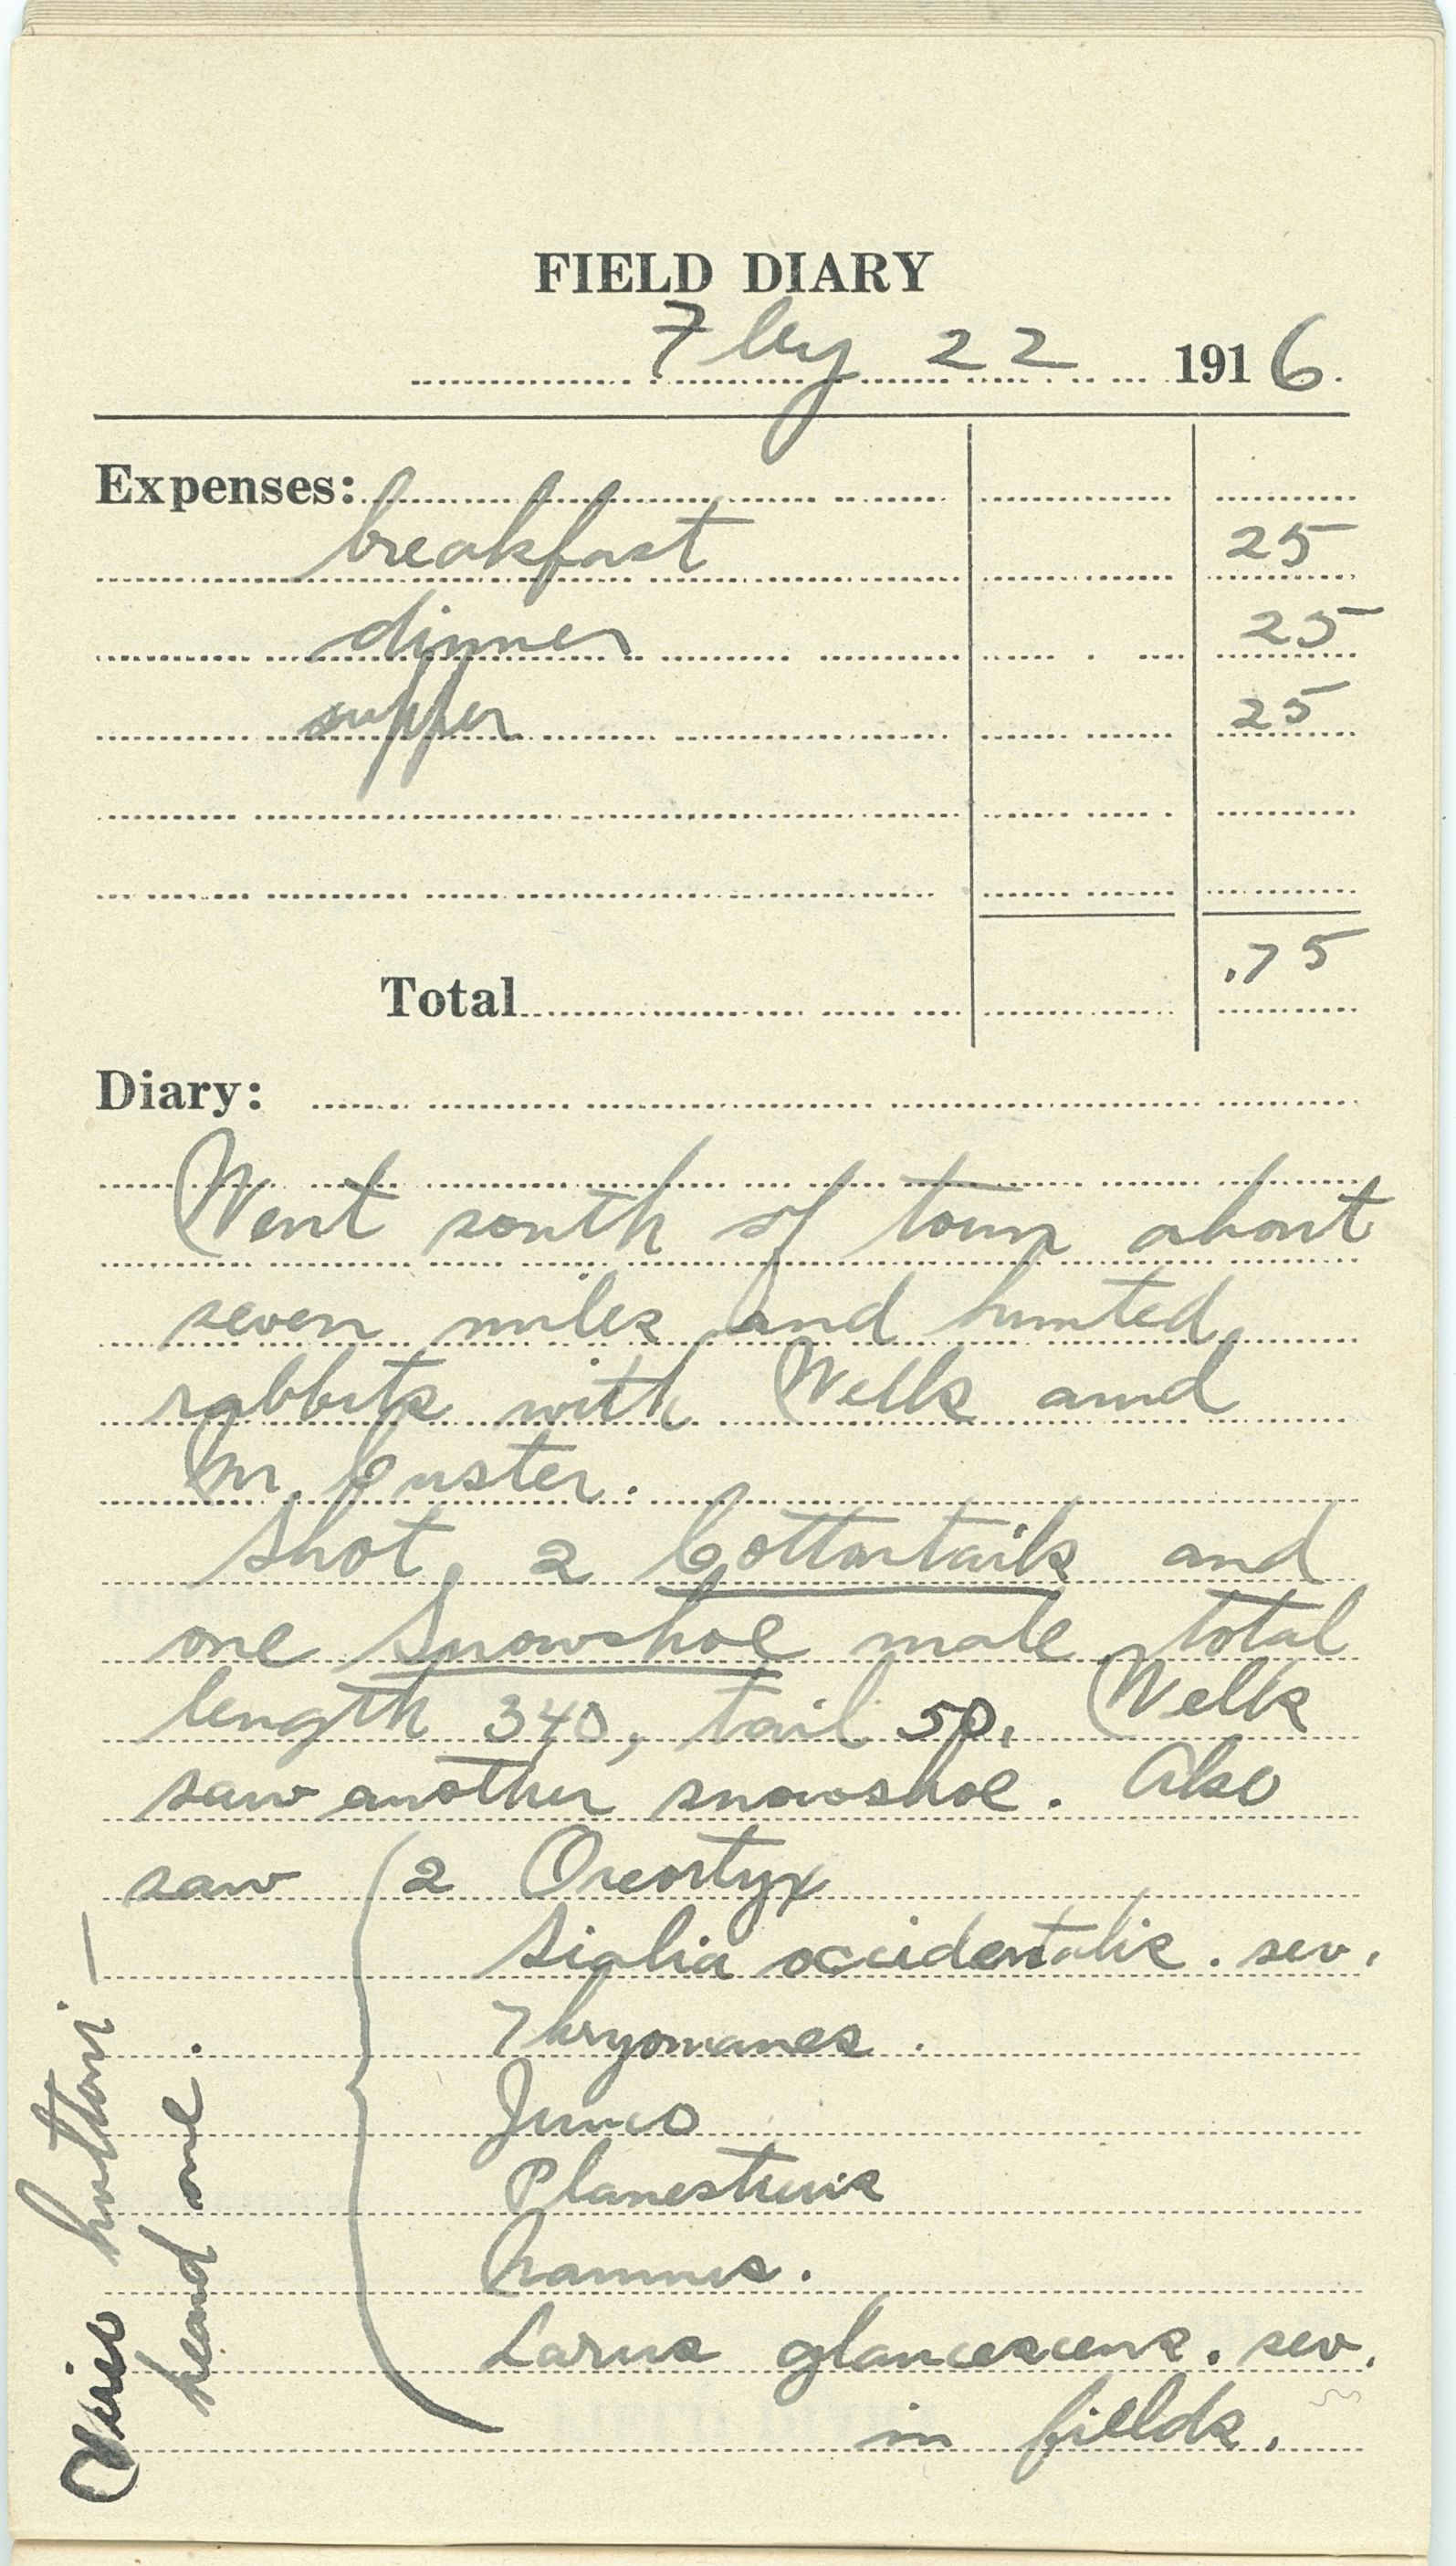 FIELD DIARY
Feby 22 1916.
Expenses:
breakfast 25
dinner 25
supper 25
.75
Total
Diary:
Went south of town about
seven miles and hunted
rabbits with Wells and
Mr. Custer.
Shot 2 Cottontails and
one Snowshoe male total
length 340, tail 50. Wells
saw another snowshoe. Also
saw 2 Oreortyx
Sialia occidentalis. sev.
Thryomanes.
Junco
Planesticus
Chammus.
Larus glaucescens. sev.
in fields.
Vireo huttoni —
heard one.